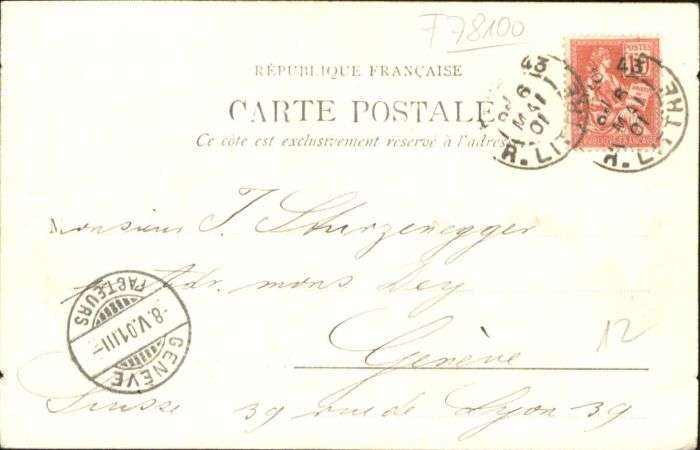 F78100
RÉPUBLIQUE FRANÇAISE
CARTE POSTALE
Ce côte est exclusivement réservé à l'adresse
POSTES
10
RÉPUBLIQUE FRANÇAISE
43
6
MAI
01
R. LITTRÉ
43
6
MAI
01
R. LITTRÉ
Monsieur J. Sturzenegger
Adr. mons Dey
Genève
Suisse 39 rue de Lyon 39
12
FACTEURS
-8.V.01.III-
GENÈVE